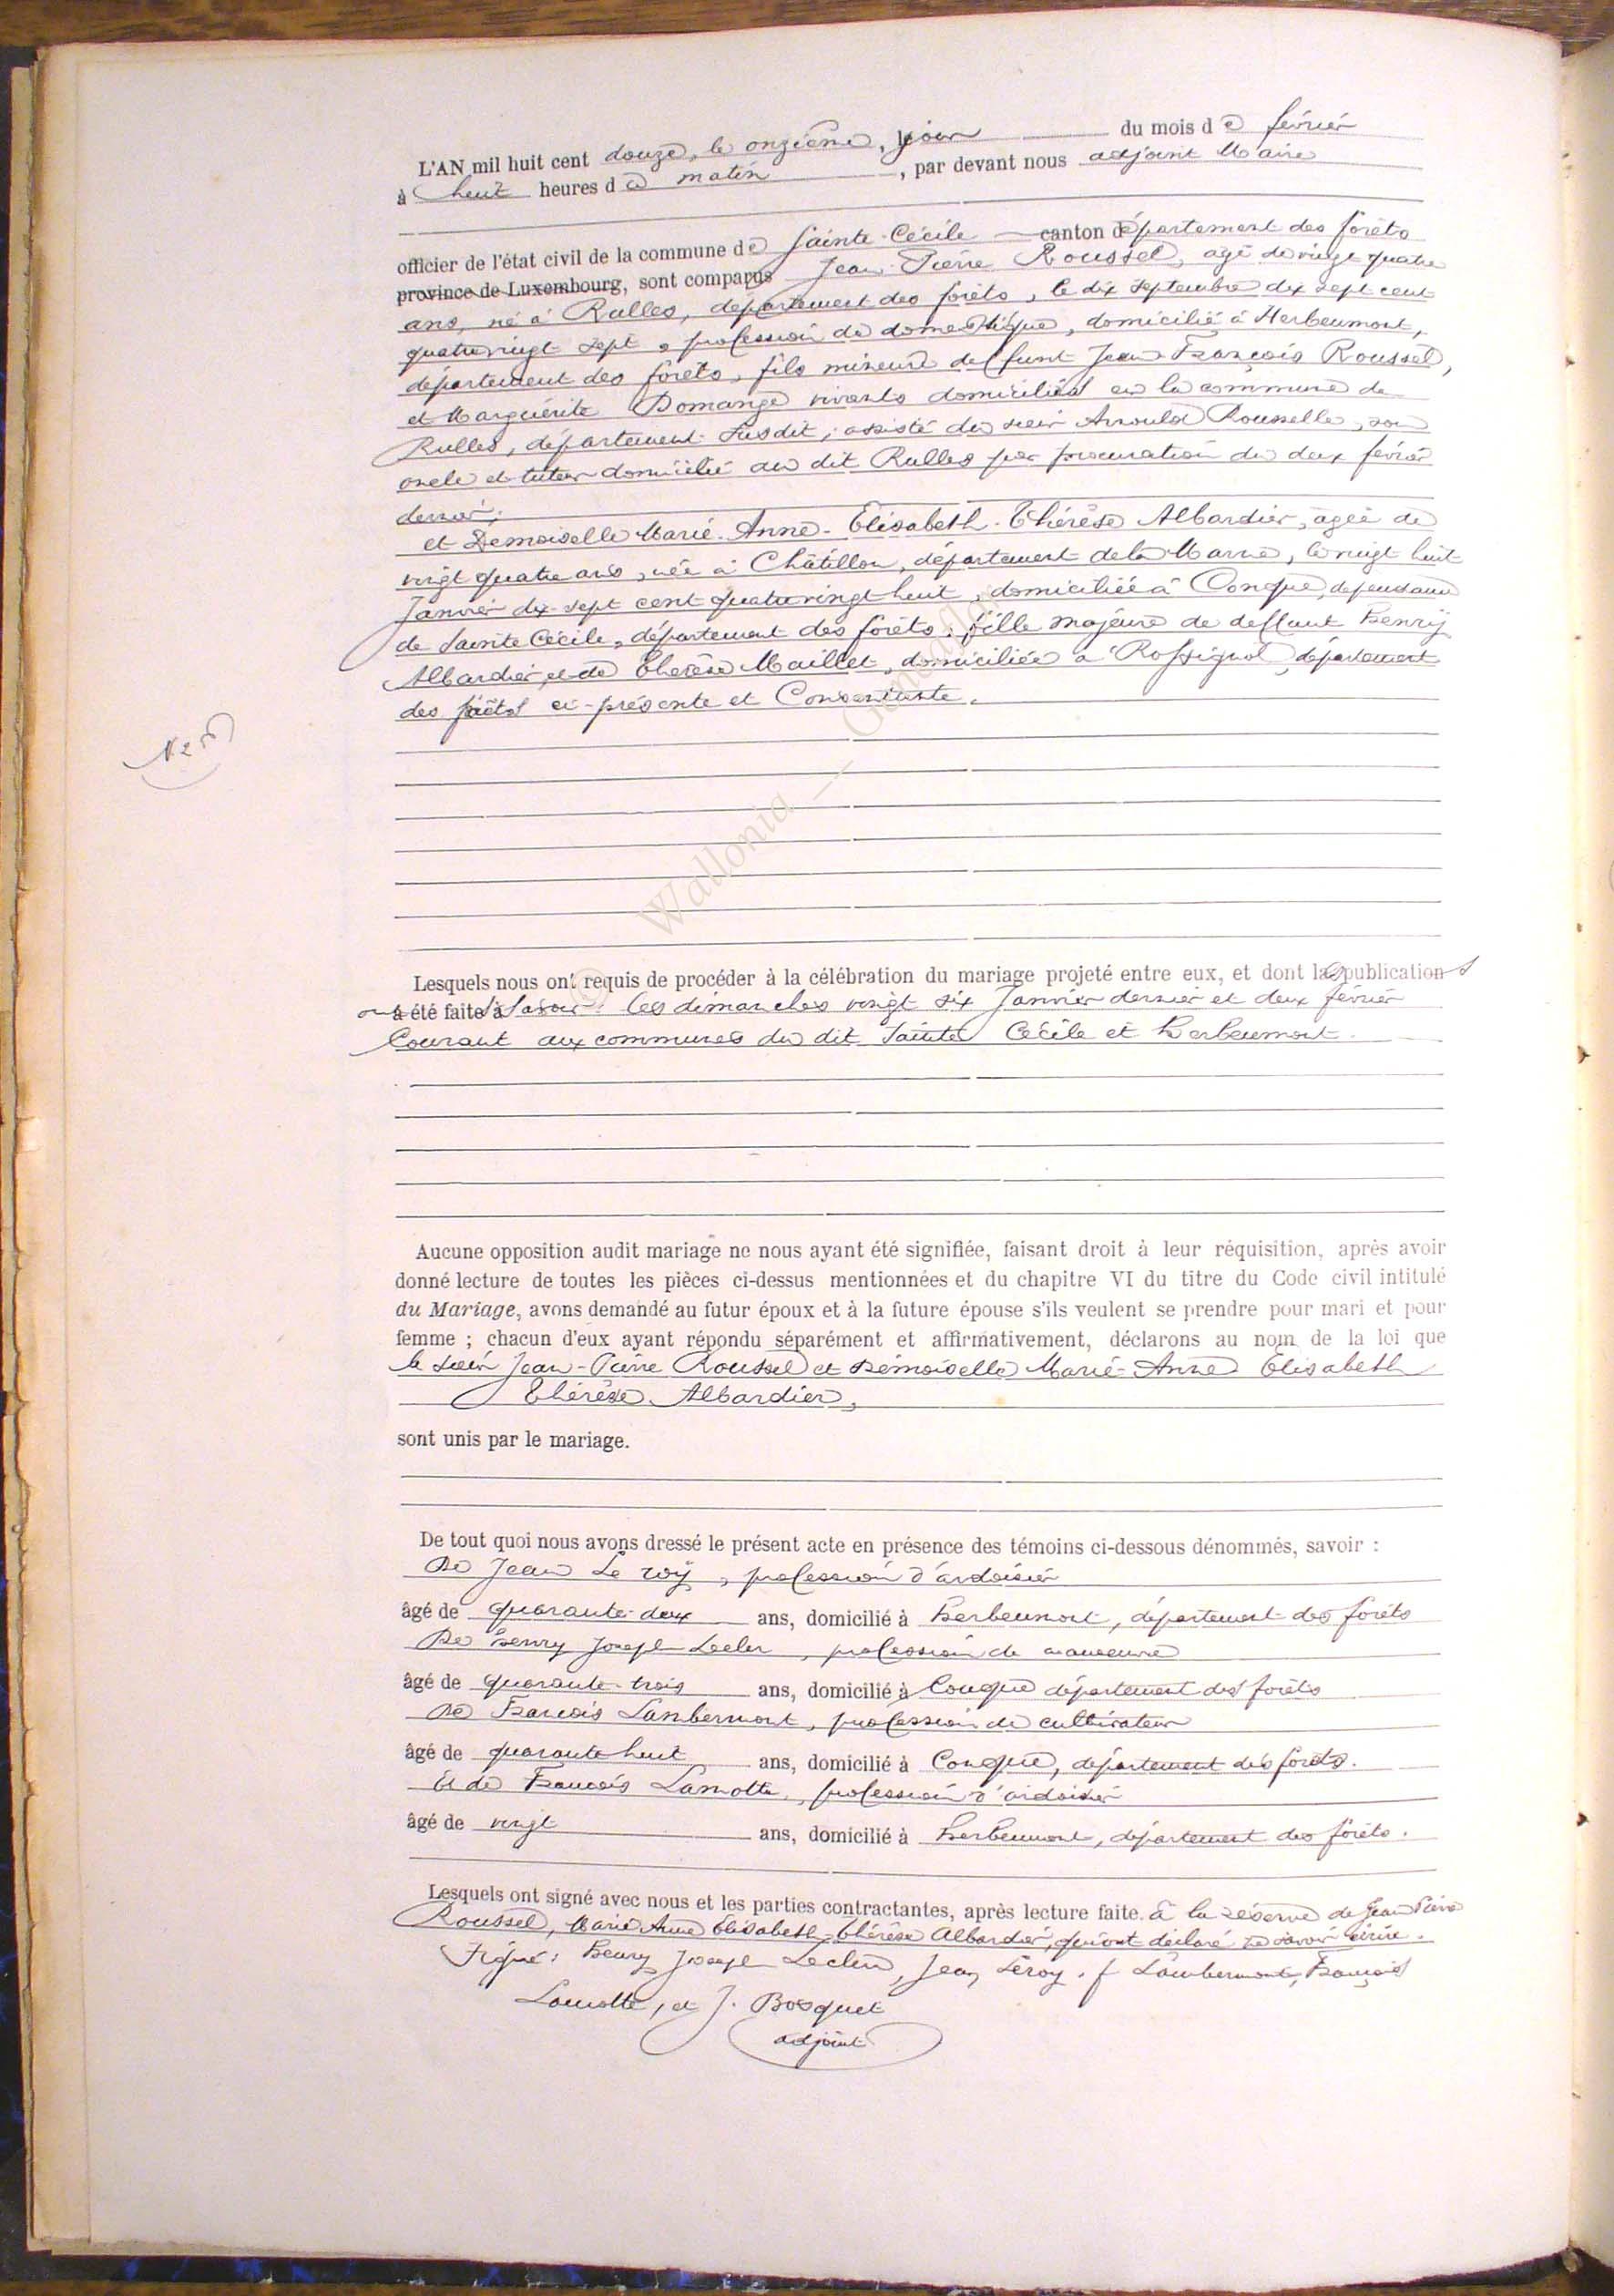 L'AN mil huit cent douze, le onzième, jour du mois de février
à huit heures du matin, par devant nous adjoint Maire
officier de l'état civil de la commune de Sainte-Cécile canton département des forêts
province de Luxembourg, sont comparus Jean-Pierre Roussel, âgé de vingt quatre
ans, né à Rulles, département des forêts, le dix septembre dix sept cent
quatrevingt sept, profession de domestique, domicilié à Herbeumont,
département des forêts, fils mineure de funt Jean François Roussel,
et Marguérite Domange vivants domiciliés en la commune de
Rulles, département susdit, assisté du sieur Arnould Rousselle, son
oncle et tuteur domicilié au dit Rulles par procuration du deux février
dernier;
et Demoiselle Marie-Anne-Elisabeth-Thérèse Albardier, âgée de
vingt quatre ans, née à Châtillon, département de la Marne, le vingt huit
Janvier dix-sept cent quatrevingt huit, domiciliée à Conque, dependance
de Sainte Cécile, département des forêts, fille majeure de deffunt Henrÿ
Albardier, et de Thérèse Maillet, domiciliée à Rossignol, département
des forêts ci-présente et Consentante.
N 2
© Wallonia —
Lesquels nous ont requis de procéder à la célébration du mariage projeté entre eux, et dont les publications
ont été faites à Savoir: les dimanches vingt six Janvier dernier et deux février
Courant aux communes du dit Sainte Cécile et herbeumont.
Aucune opposition audit mariage ne nous ayant été signifiée, faisant droit à leur réquisition, après avoir
donné lecture de toutes les pièces ci-dessus mentionnées et du chapitre VI du titre du Code civil intitulé
du Mariage, avons demandé au futur époux et à la future épouse s'ils veulent se prendre pour mari et pour
femme ; chacun d'eux ayant répondu séparément et affirmativement, déclarons au nom de la loi que
le sieur Jean-Pierre Roussel et Demoiselle Marie-Anne Elisabeth
Thérèse Albardier,
sont unis par le mariage.
De tout quoi nous avons dressé le présent acte en présence des témoins ci-dessous dénommés, savoir :
De Jean Le roÿ, profession d'ardoisier
âgé de quarante-deux ans, domicilié à herbeumont, département des forêts
De henry Joseph Lecler, profession de manœuvre
âgé de quarante-trois ans, domicilié à Conque département des forêts
De François Lambermont, profession de cultivateur
âgé de quarante huit ans, domicilié à Conque, département des forêts.
Et de François Lamotte, profession d'ardoisier
âgé de vingt ans, domicilié à herbeumont, département des forêts.
Lesquels ont signé avec nous et les parties contractantes, après lecture faite. à la réserve de Jean Pierre
Roussel, Marie Anne Elisabeth Thérèse Albardier, qui ont déclaré ne savoir écrire.
Signé: henry Joseph Leclere, Jean Leroy. f Lambermont, François
Lamotte, et J. Bosquet
adjoint